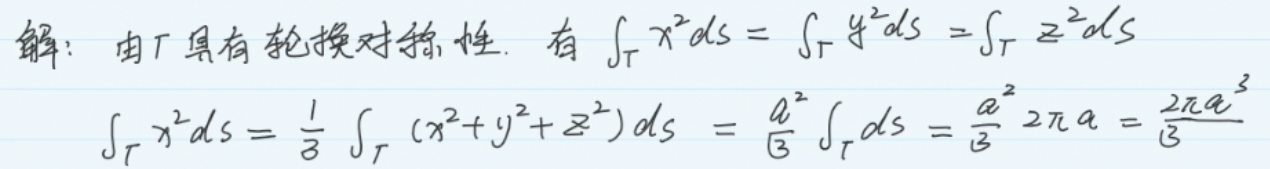 解: 由Γ具有轮换对称性. 有 ∫_Γ x²ds = ∫_Γ y²ds = ∫_Γ z²ds
∫_Γ x²ds = 1/3 ∫_Γ (x²+y²+z²)ds = a²/3 ∫_Γ ds = a²/3 2πa = 2πa³/3